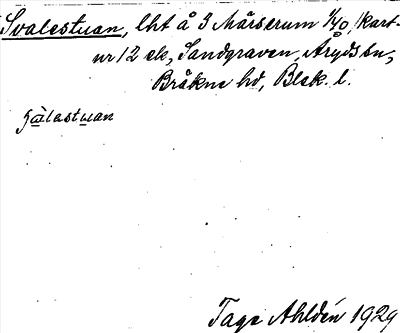 Svalestuan, lht å 3 Mårserum 1/40, (kart-
nr 12 ek, Sandgraven, Aryds sn,
Bräkne hd, Blek. l.
Tage Ahldén 1929